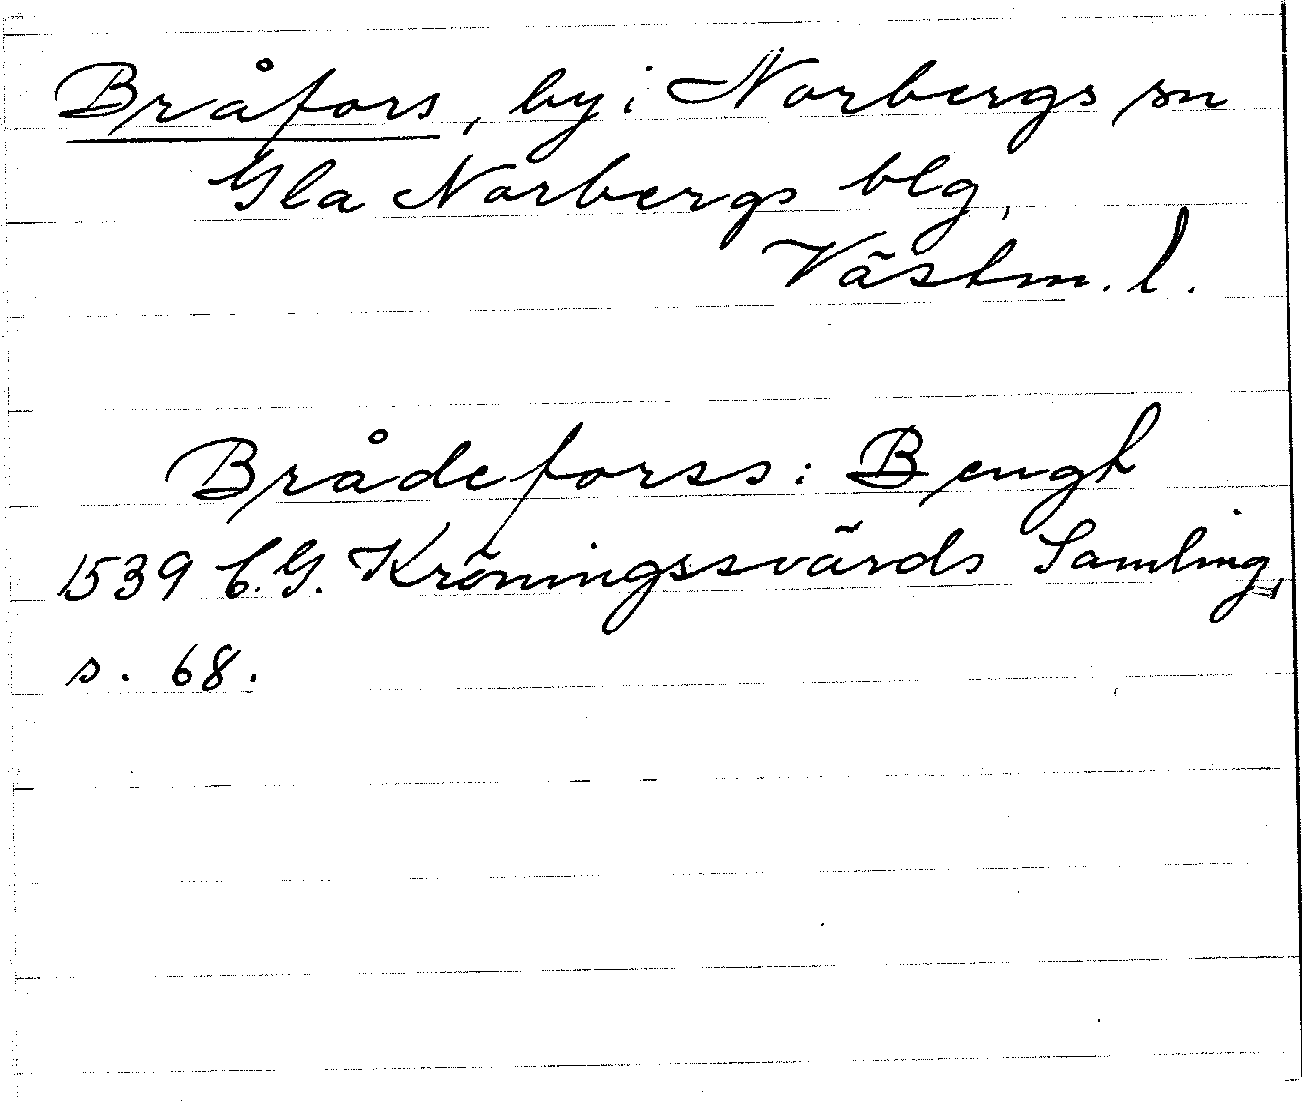 Bråfors, by i Norbergs sn
Gla Norbergs blg,
Västm. l.
Brådeforss: Bengt
1539 C.G. Kröningssvärds Samling,
s. 68.